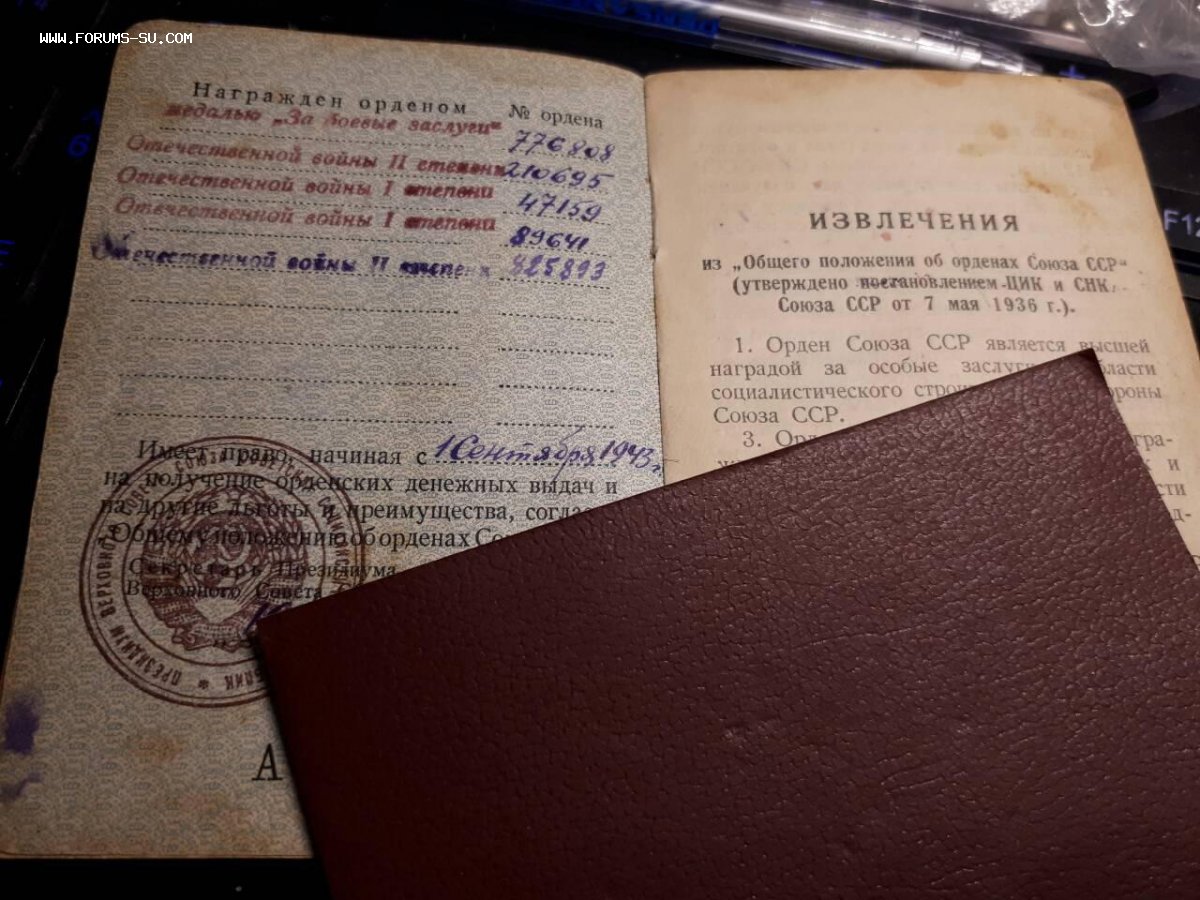 WWW.FORUMS-SU.COM
Награжден орденом № ордена
медалью „За боевые заслуги“ 776808
Отечественной войны II степени 210695
Отечественной войны I степени 47159
Отечественной войны I степени 89641
Отечественной войны II степени 825893
Имеет право, начиная с 1 Сентября 1943 г.
на получение орденских денежных выдач и
на другие льготы и преимущества, соглас
Общему положению об орденах Со
Секретарь Президиума
Верховного Совета
ПРЕЗИДИУМ ВЕРХОВНО
СОЮЗА
А
ИЗВЛЕЧЕНИЯ
из „Общего положения об орденах Союза ССР“
(утверждено постановлением ЦИК и СНК
Союза ССР от 7 мая 1936 г.).
1. Орден Союза ССР является высшей
наградой за особые заслуги ласти
социалистического строи ороны
Союза ССР.
3. Орд гра-
к и
сти
д-
F12
6